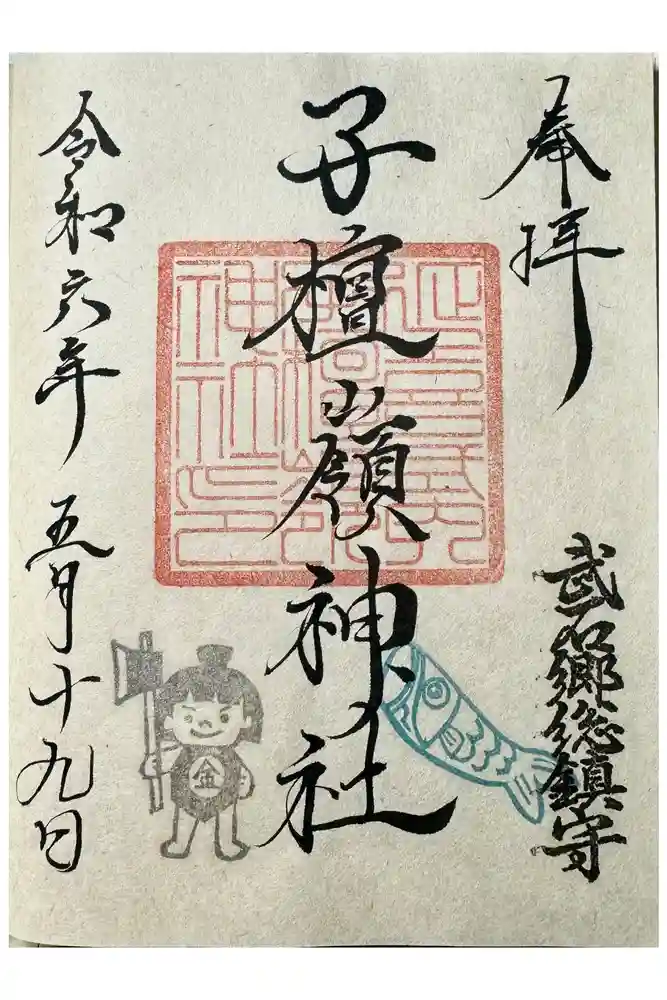 奉拝
武石郷総鎮守
子檀嶺神社
金
令和六年 五月十九日